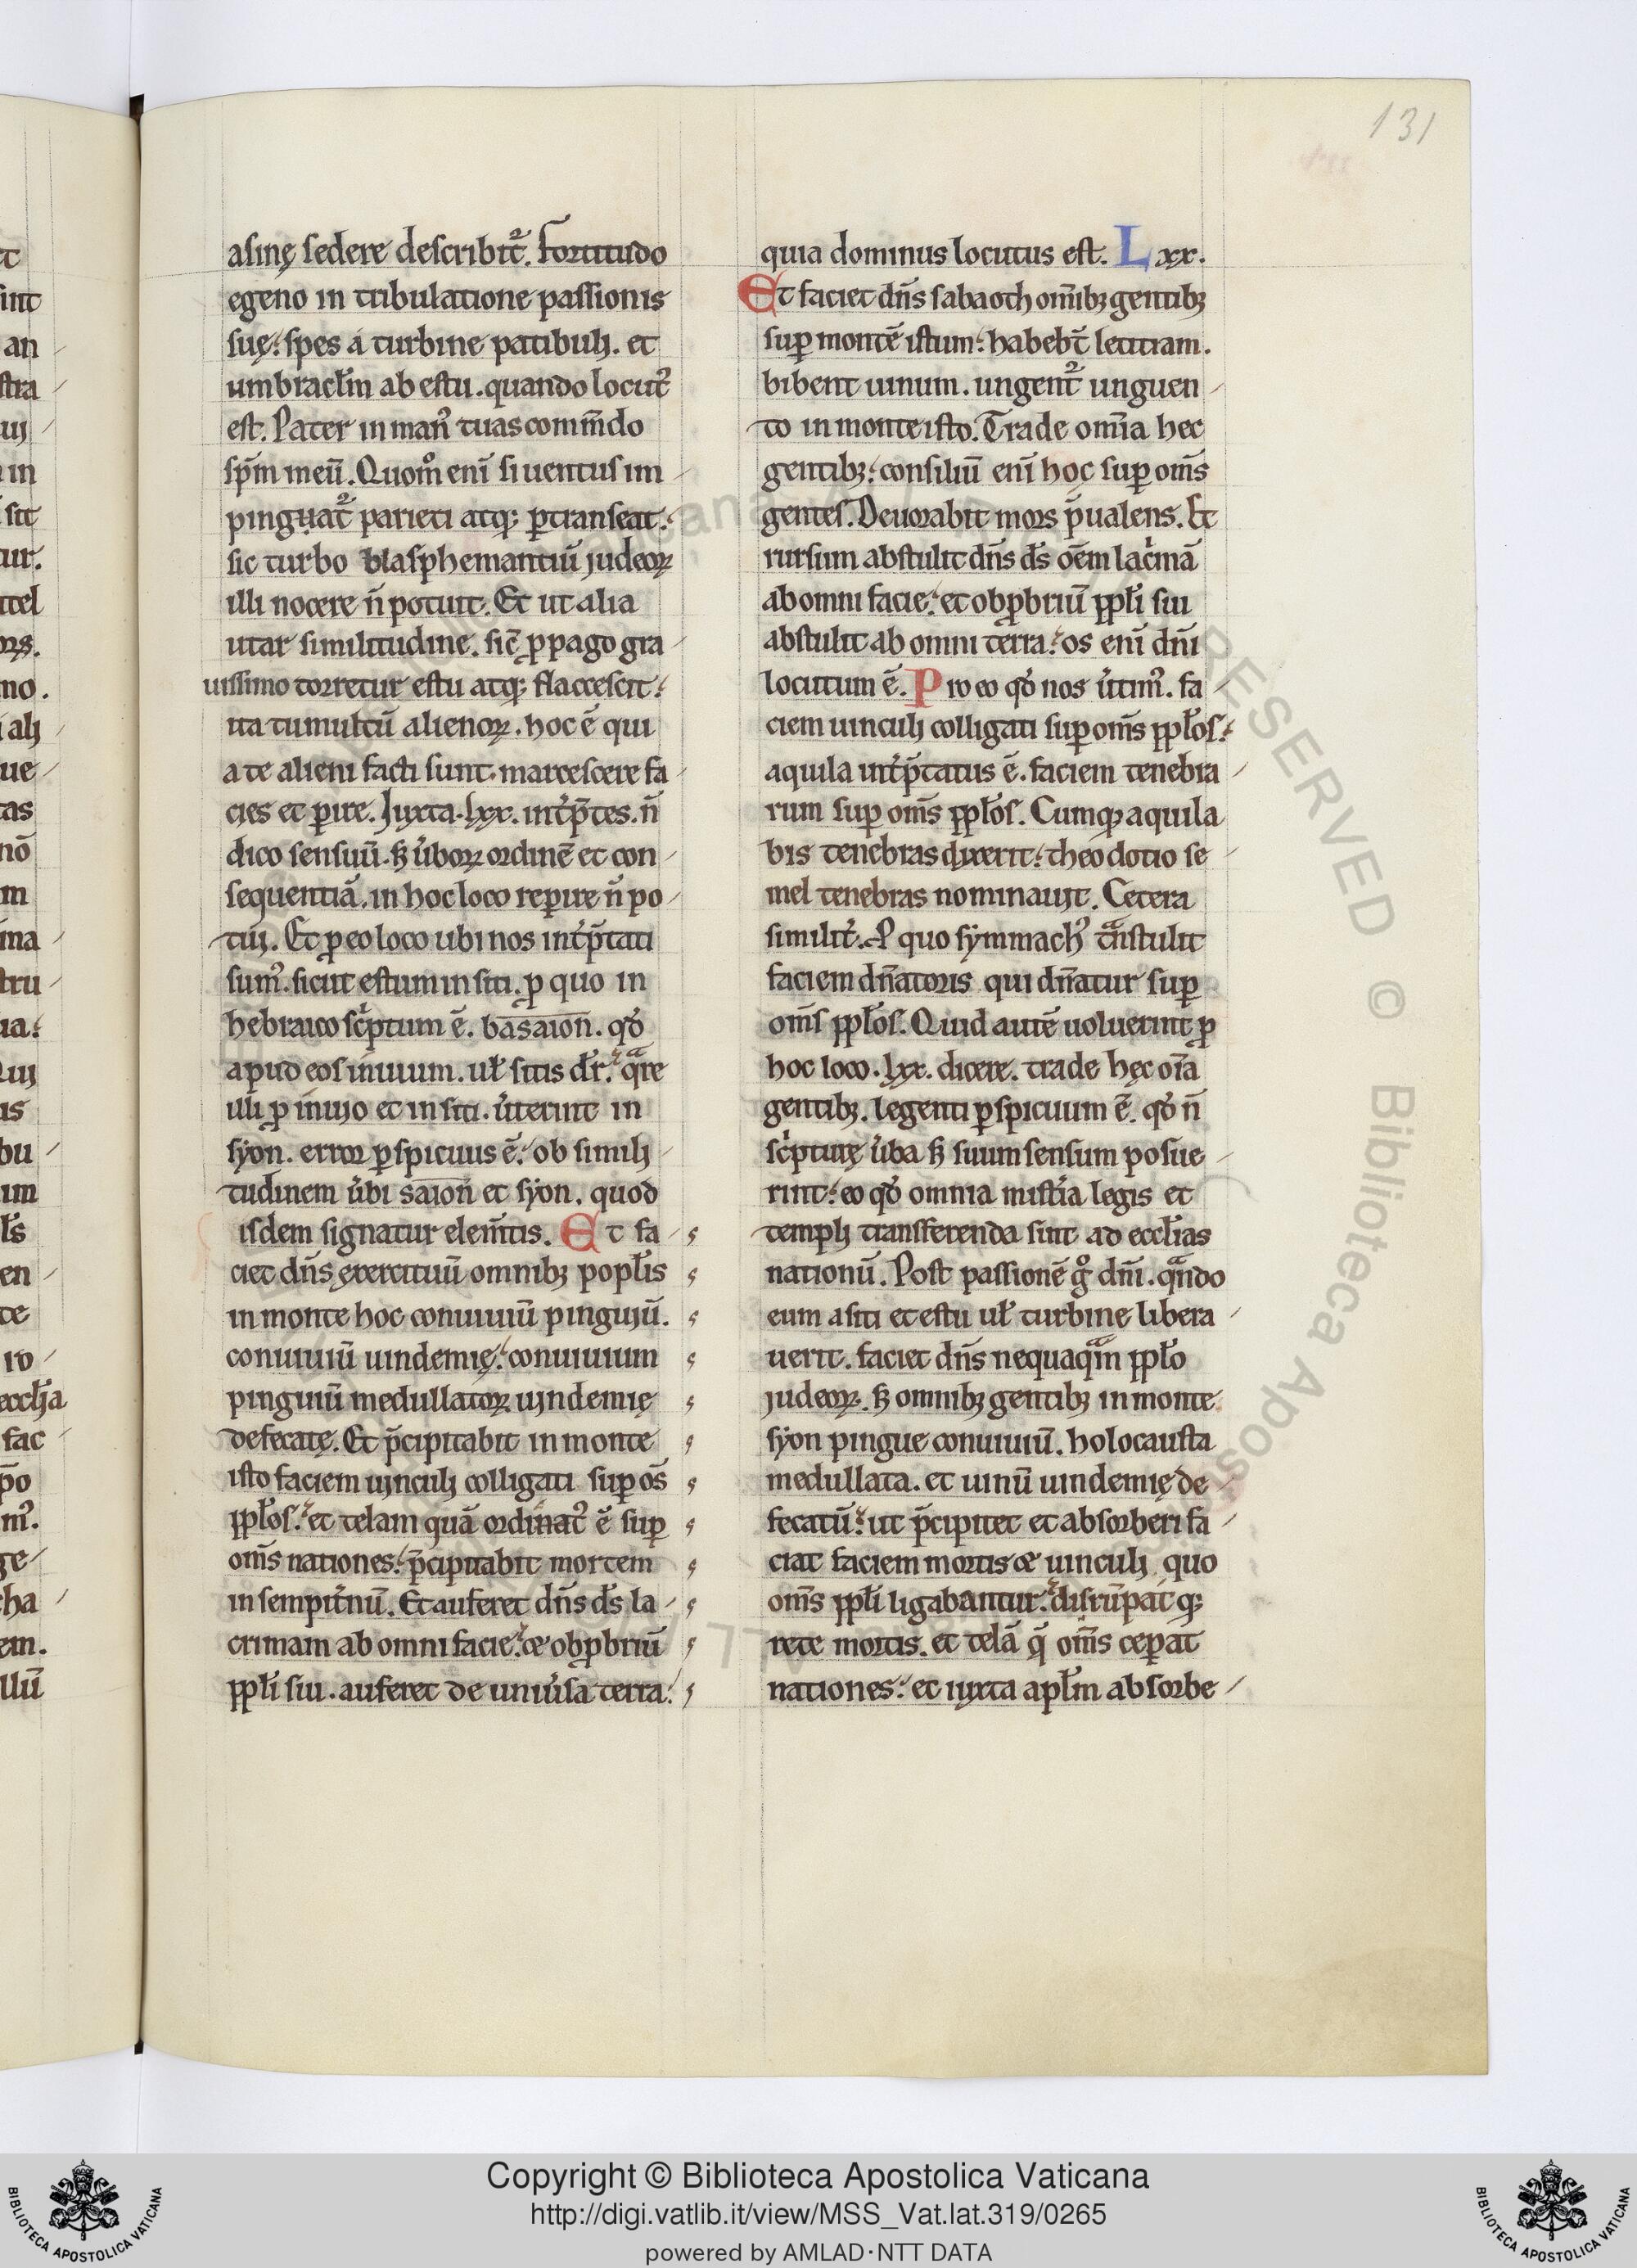 131
asinę sedere describit᷑. Fortitudo
egeno in tribulatione passionis
suę. spes a turbine patibuli. et
umbracl̄m ab estu. quando locut᷒
est. Pater in man᷒ tuas com̄mdo
sp̄m meū. Quom̊ enī si uentus im
pingu̇at᷑ parieti atq; ꝑtranseat.
sic turbo blasphemantiū judeoꝝ
illi nocere n̄ potuit. Et ut alia
utar similitudine. sic̄ ꝓpago gra
uissimo torretur estu atq; flaccescit.
ita tumultū alienoꝝ. hoc ē qui
a te alieni facti sunt. marcescere fa
cies et ꝑire. Juxta. lxx. int̓p̄tes. n̄
dico sensuū. s; u̓boꝝ ordinē et con
sequentiā. in hoc loco reꝑire n̄ po
tui. Et ꝓ eo loco ubi nos int̓p̄tati
sum᷒. sicut estum in siti. ꝓ quo in
hebraico sc̓ptum ē. basaion. qd̓
apud eos inuium. ul̄ sitis dr̄. qͣre
illi ꝓ inuio et in siti. u̓terint in
syon. error ꝑspicuus ē. ob simili
tudinem u̓bi saion et syon. quod
isdem signatur elem̄tis. Et fa
ciet dn̄s exercituū omnibꝫ popl̄is
in monte hoc conuiuiū pinguiū.
conuiuiū uindemię. conuiuium
pinguiū medullatoꝝ uindemię
defecatę. Et p̄cipitabit in monte
isto faciem uinculi colligati suꝑ os̄
ppl̄os. et telam quā ordinat᷒ ē suꝑ
om̄s nationes. p̄cipitabit mortem
in sempit̓nū. Et auferet dn̄s ds̄ la
crimam ab omni facie. & obꝓbriū
ppl̄i sui. auferet de uniu̓sa terra.
quia dominus locutus est. Lxx.
Et faciet dn̄s sabaoth om̄ibꝫ gentibꝫ
suꝑ montē istum. habebt̄ letitiam.
bibent uinum. ungent᷑ unguen
to in monte isto. Trade om̄ia hec
gentibꝫ. consiliū enī hoc suꝑ om̄s
gentes. Deuorabit mors p̄ualens. Et
rursum abstulit dn̄s ds̄ oēm lac̓mā
ab omni facie. et obꝓbriū ppl̄i sui
abstulit ab omni terra. os enī dn̄i
locutum ē. Pro eo qd̓ nos u̓tim᷒. fa
ciem uinculi colligati suꝑ om̄s ppl̄os.
aquila int̓p̄tatus ē. faciem tenebra
rum suꝑ om̄s ppl̄os. Cumq; aquila
bis tenebras dixerit. theodotio se
mel tenebras nominauit. Cetera
similit̓. P quo symmach᷒ tͣnstulit
faciem dn̄atoris qui dn̄atur suꝑ
om̄s ppl̄os. Quid autē uoluerint ꝑ
hoc loco. lxx. dicere. trade hęc oīa
gentibꝫ. legenti ꝑspicuum ē. qd̓ n̄
sc̓pturę u̓ba s; suum sensum posue
rint. eo qd̓ omnia mistīa legis et
templi transferenda sint ad eccl̄ias
nationū. Post passionē g̊ dn̄i. qͣndo
eum a siti et estu ul̄ turbine libera
uerit. faciet dn̄s nequaqͣm ppl̄o
judeoꝝ. s; omnibꝫ gentibꝫ in monte
syon pingue conuiuiū. holocausta
medullata. et uinū uindemię de
fecatū. ut p̄cipitet et absorberi fa
ciat faciem mortis & uinculi quo
om̄s ppl̄i ligabantur. disrūpat q;
rete mortis. et telā q̄ om̄s ceꝑat
nationes. et iuxta apl̄m absorbe
Copyright © Biblioteca Apostolica Vaticana
http://digi.vatlib.it/view/MSS_Vat.lat.319/0265
powered by AMLAD·NTT DATA
BIBLIOTECA APOSTOLICA VATICANA
BIBLIOTECA APOSTOLICA VATICANA